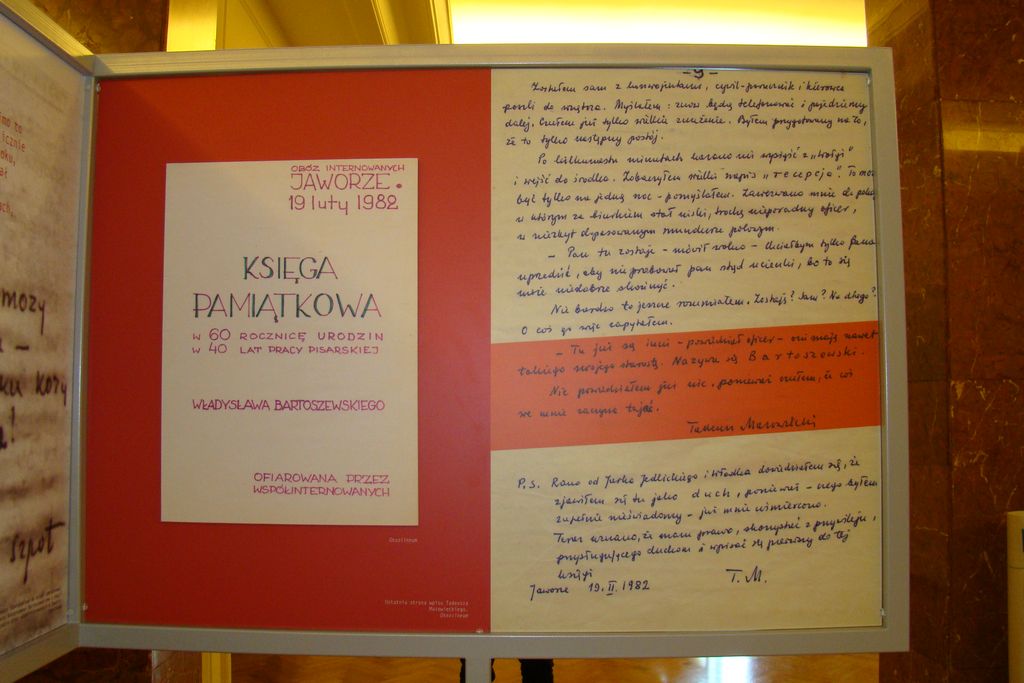 mozy
–
kozy
!
szpot
OBÓZ INTERNOWANYCH
JAWORZE.
19 luty 1982
KSIĘGA
PAMIĄTKOWA
W 60 ROCZNICĘ URODZIN
W 40 LAT PRACY PISARSKIEJ
WŁADYSŁAWA BARTOSZEWSKIEGO
OFIAROWANA PRZEZ
WSPÓŁINTERNOWANYCH
Ossolineum
Ostatnia strona wpisu Tadeusza
Mazowieckiego.
Ossolineum
-9-
Zostałem sam z konwojentami, cywil-porucznik i kierowca
poszli do wnętrza. Myślałem: znowu będą telefonować i pojedziemy
dalej. Czułem już tylko wielkie znużenie. Byłem przygotowany na to,
że to tylko następny postój.
Po kilkunastu minutach kazano mi wysiąść z „wołgi"
i wejść do środka. Zobaczyłem wielki napis „recepcja". To może
być tylko na jedną noc - pomyślałem. Zawezwano mnie do pokoju
w którym za biurkiem stał niski, trochę nieporadny oficer,
w niezbyt dopasowanym mundurze polowym.
– Pan tu zostaje – mówił wolno – chciałbym tylko pana
uprzedzić, aby nie próbował pan stąd ucieczki, bo to się
może niedobrze skończyć.
Nie bardzo to jeszcze rozumiałem. Zostaję? Sam? Na długo?
O coś go więc zapytałem.
– Tu już są inni – powiedział oficer – oni mają nawet
takiego swojego starostę. Nazywa się Bartoszewski.
Nie powiedziałem już nic, ponieważ czułem, że coś
we mnie zaczyna tajać.
Tadeusz Mazowiecki
P.S. Rano od Jurka Jedlickiego i Władka dowiedziałem się, że
zjawiłem się tu jako duch, ponieważ – czego byłem
zupełnie nieświadomy – już mnie uśmiercono.
Teraz uznano, że mam prawo, skorzystać z przywileju,
przysługującego duchom i wpisać się pierwszy do tej
księgi
Jaworze 19.II.1982 T.M.